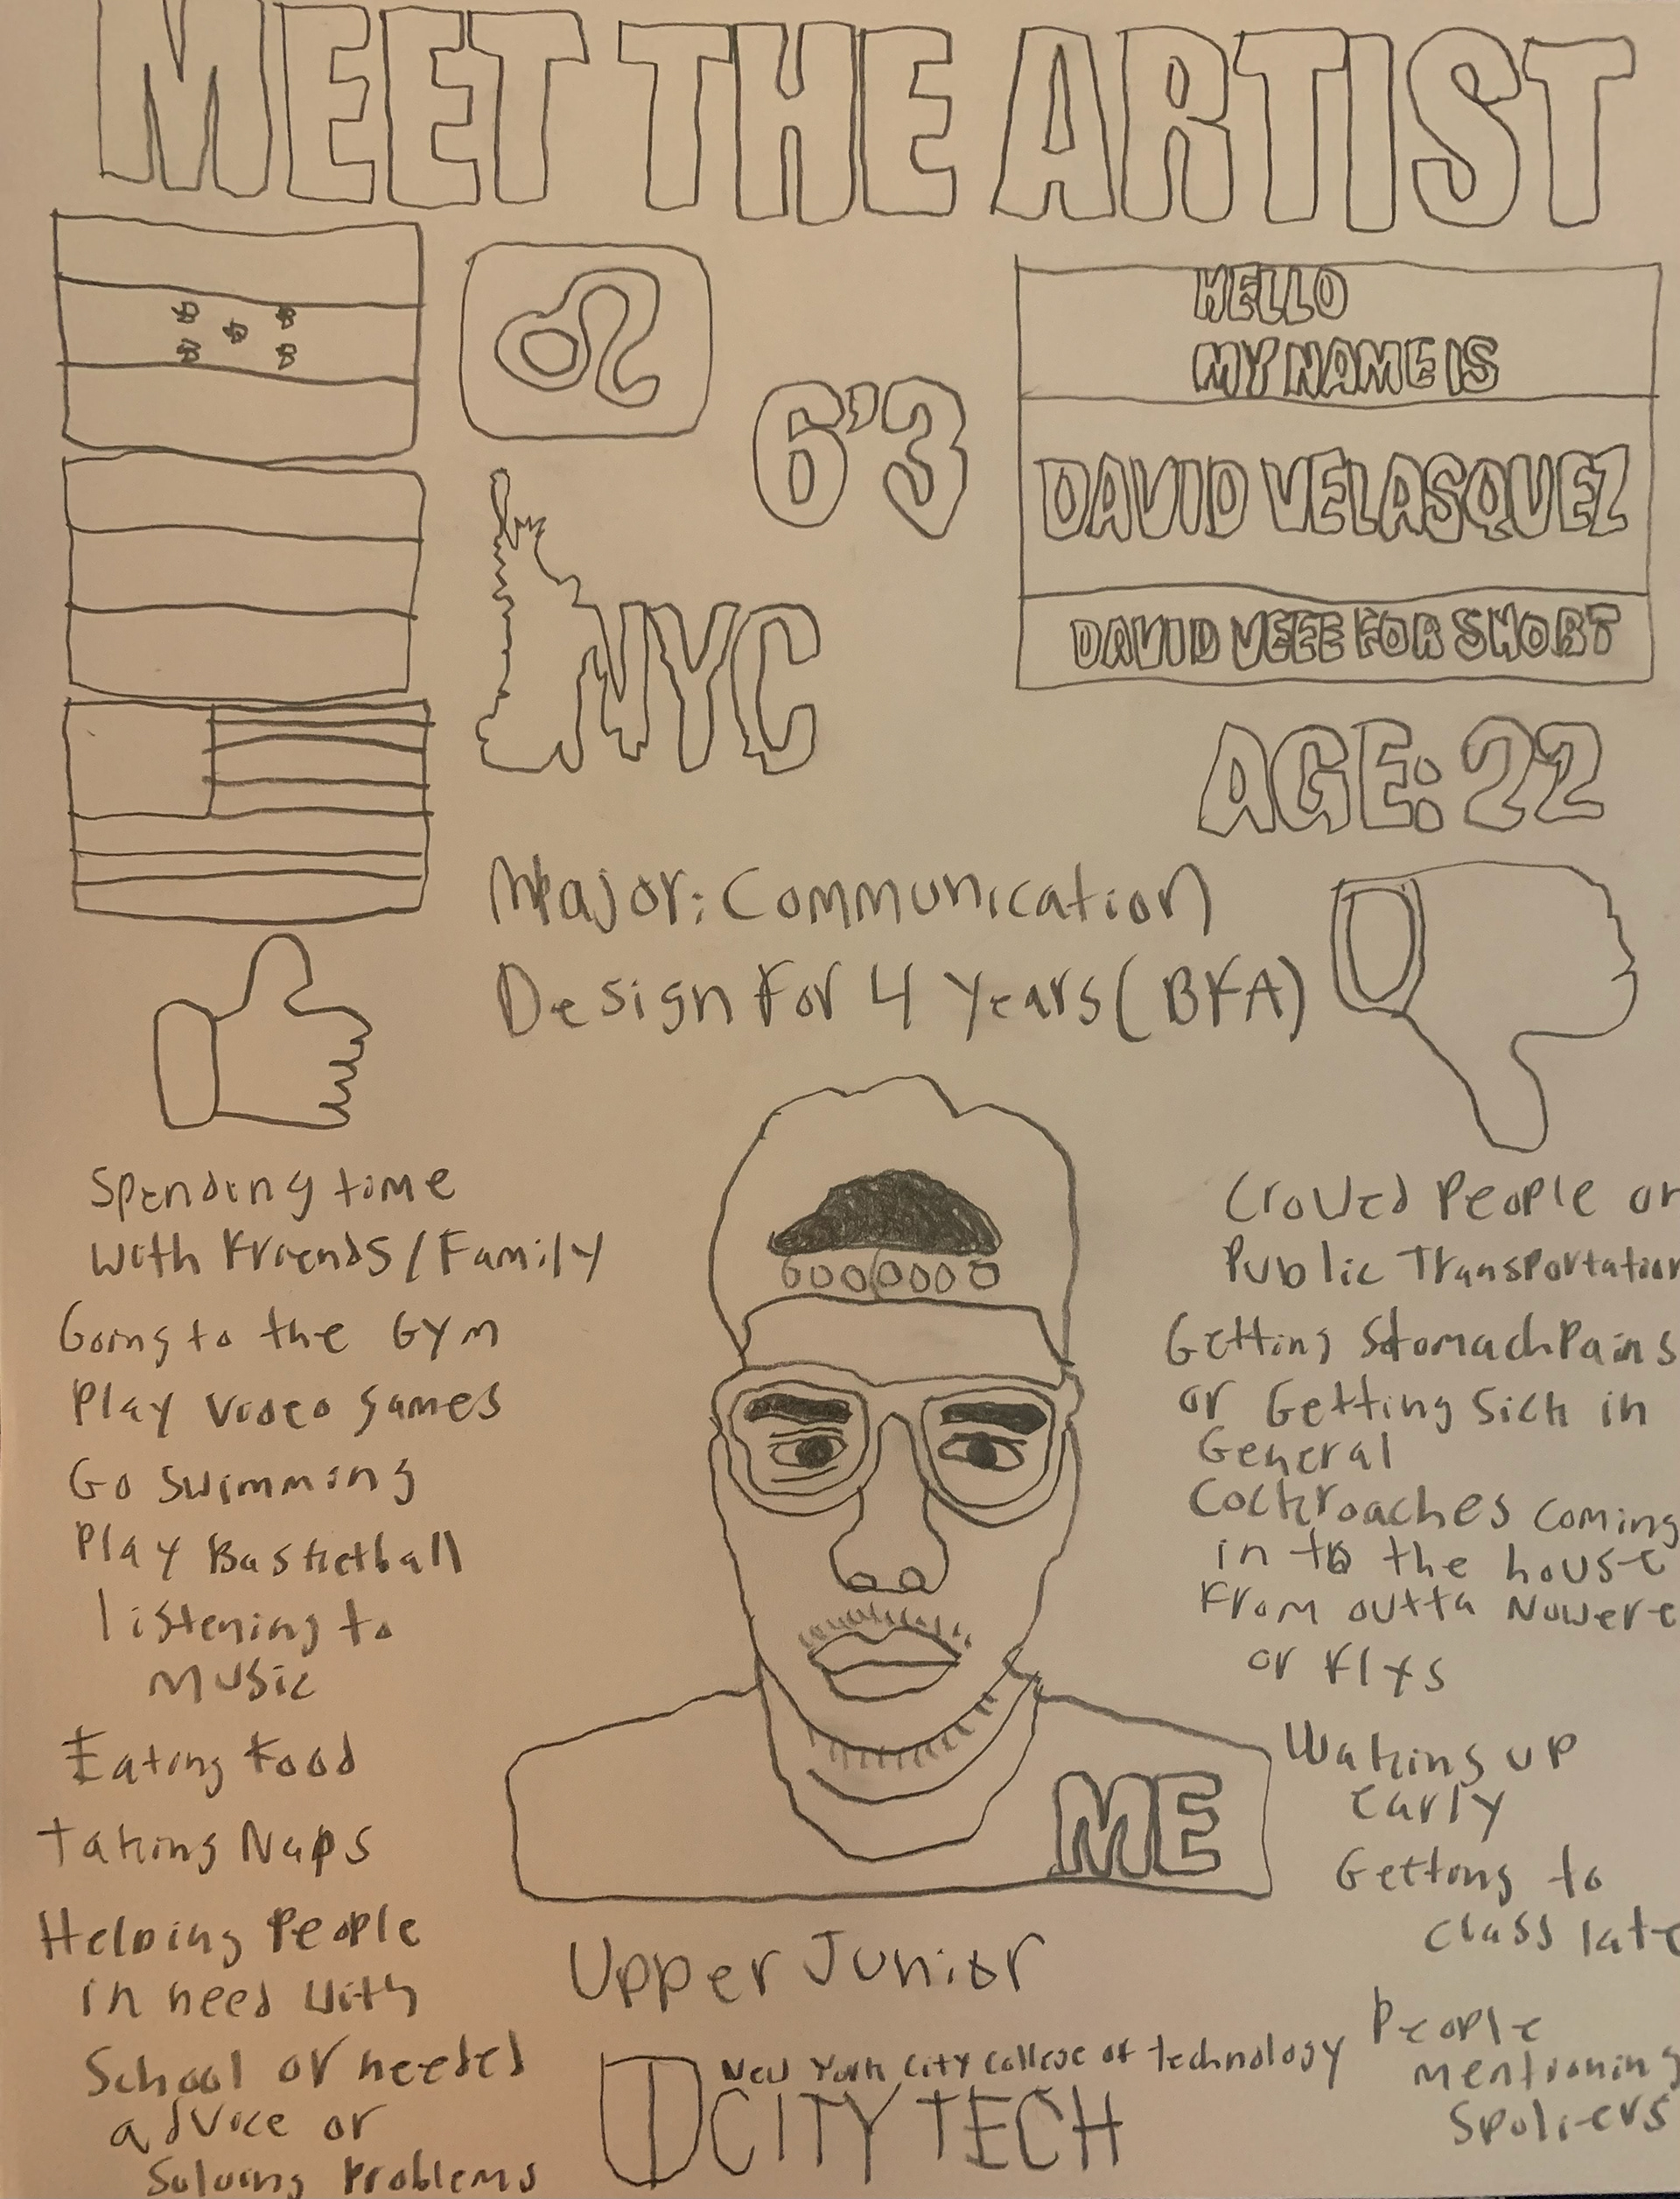 MEET THE ARTIST
HELLO
MY NAME IS
DAVID VELASQUEZ
DAVID VEEE FOR SHORT
6'3
NYC
AGE: 22
Major: Communication
Design For 4 Years (BFA)
Spending time
with Friends/Family
Going to the Gym
Play video games
Go swimming
Play Basketball
listening to
music
Eating Food
Taking Naps
Helping People
in need with
School or needed
advice or
Solving Problems
Crowed People on
Public Transportation
Getting Stomach Pains
or Getting Sick in
General
Cockroaches coming
in to the house
From outta Nowere
or Flys
Waking up
early
Getting to
class late
People
mentioning
Spoliers
ME
Upper Junior
New York City College of technology
CITY TECH